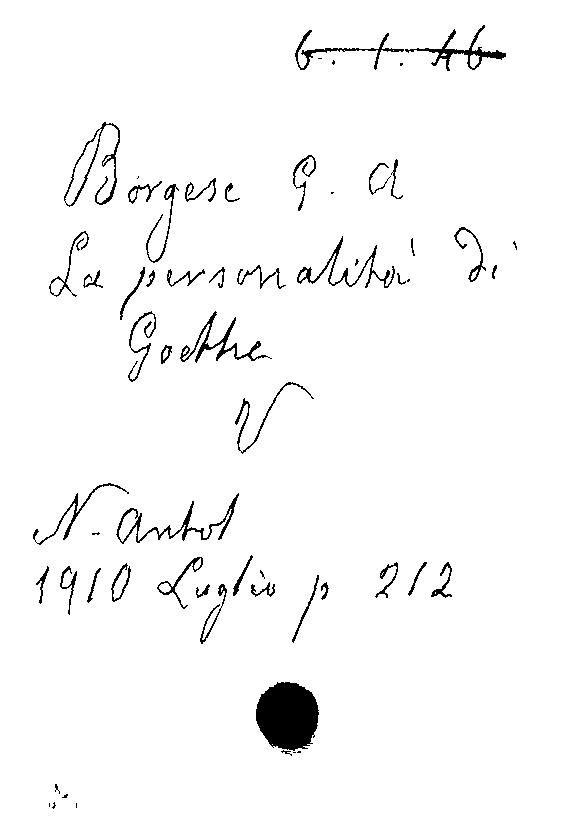 6. 1. 46
Borgese G. A
La personalità di
Goethe
V
N. Antol
1910 Luglio p 212